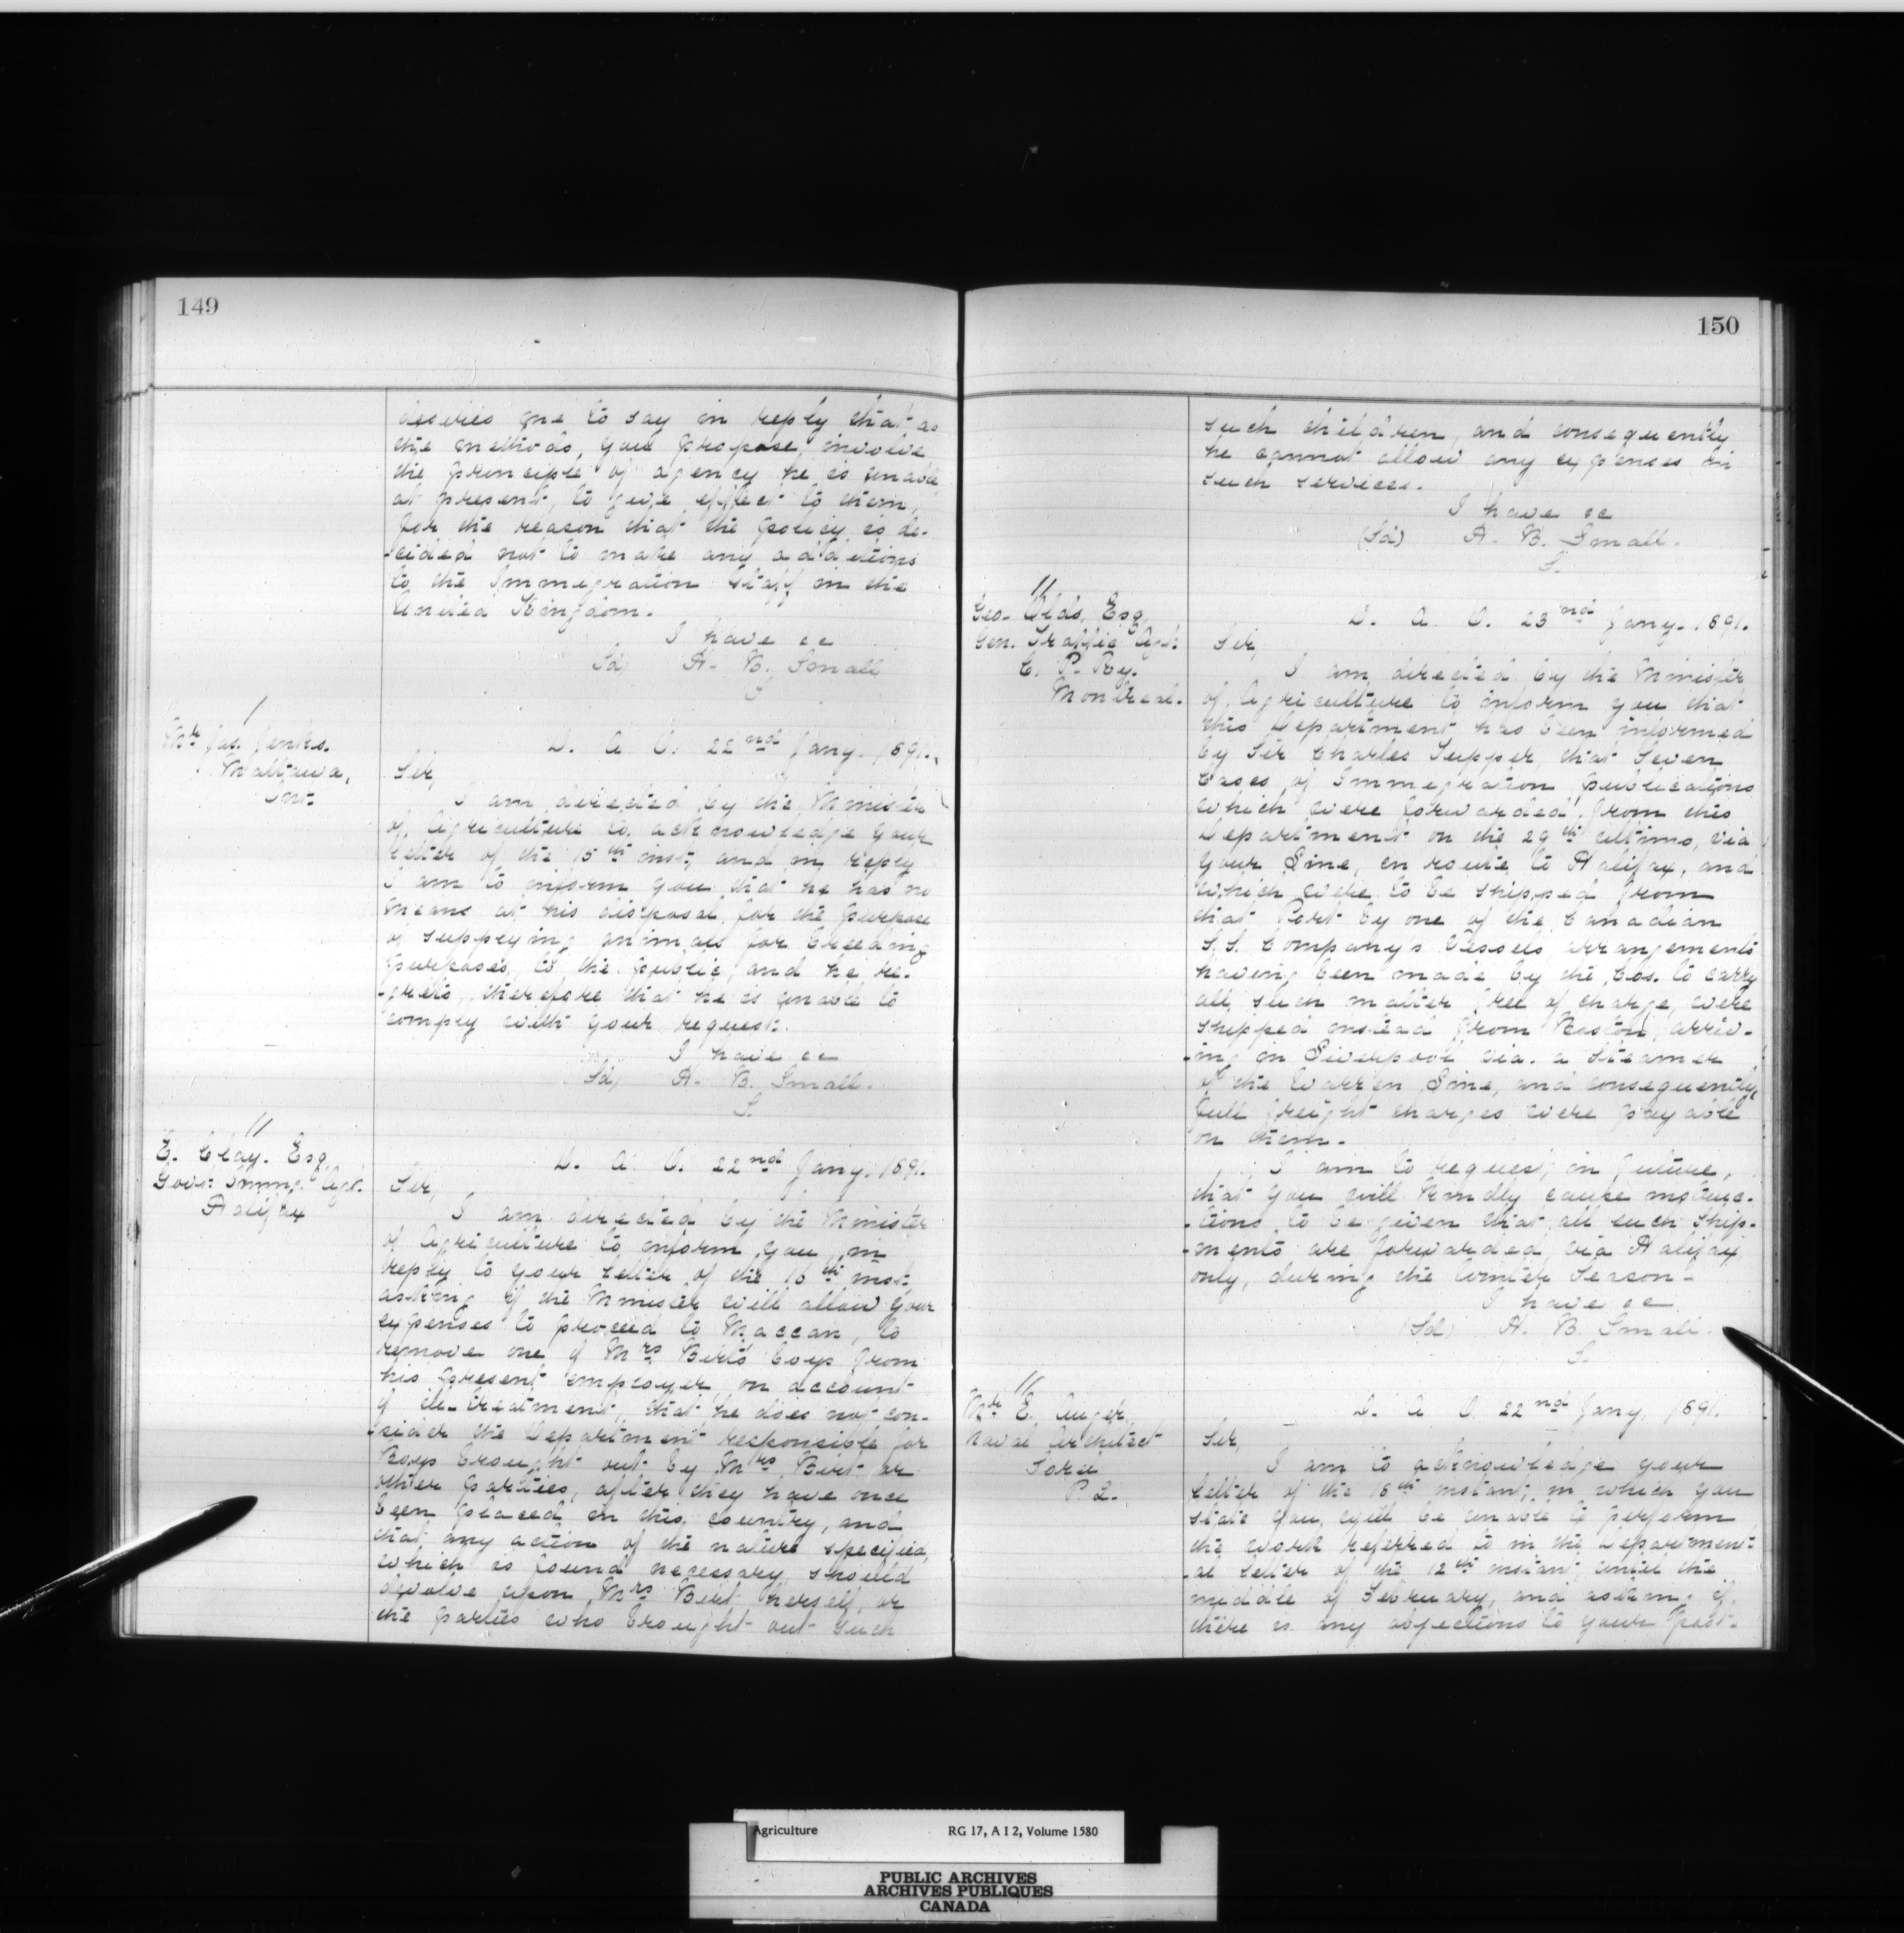 149
desires me to say in reply that as
the methods, you propose, involve
the principle of agency he is unable
at present, to give effect to them,
for the reason that the policy is de-
-cided not to make any additions
to the Immigration Staff in the
United Kingdom.
I have &c
(Sd) H. B. Small
S.
/
Mr Jas. Jenks.
Mattawa,
Ont.
D. A. O. 22nd Jany. 1891.
Sir,
I am directed by the Minister
of Agriculture to acknowledge your
letter of the 15th inst, and in reply
I am to inform you that he has no
means at his disposal for the purpose
of supplying animals for breeding
purposes, to the public, and he re-
-grets, therefore that he is unable to
comply with your request.
I have &c
(Sd) H. B. Small.
S.
//
E. Clay. Esq
Govt. Immg. Agt.
Halifax
D. A. O. 22nd Jany. 1891.
Sir,
I am directed by the Minister
of Agriculture to inform you, in
reply to your letter of the 16th inst.
asking if the Minister will allow your
expenses to proceed to Maccan, to
remove one of Mrs Birt's boys from
his present employer, on account
of ill-treatment, that he does not con-
-sider the Department responsible for
Boys brought out by Mrs Birt or
other parties, after they have once
been placed in this country, and
that any action of the nature specified,
which is found necessary, should
devolve upon Mrs Birt herself, or
the parties who brought out such
150
such children, and consequently
he cannot allow any expenses in
such services.
I have &c
(Sd) H. B. Small.
S.
//
Geo. Olds, Esq
Gen. Traffic Agt.
C. P. Ry.
Montreal.
D. A. O. 23nd Jany. 1891.
Sir,
I am directed by the Minister
of Agriculture to inform you that
this Department has been informed
by Sir Charles Tupper, that Seven
Cases of Immigration publications
which were forwarded from this
Department on the 29th ultimo, via
your Line, en route to Halifax, and
which were to be shipped from
that Port by one of the Canadian
S.S. Company's Vessels arrangements
having been made by the Cos. to carry
all such matter free of charge, were
shipped instead from Boston, arriv-
-ing in Liverpool via. a Steamer
of the Warren Line, and consequently,
full freight charges were payable
on them.
I am to request, in future,
that you will kindly cause instruc-
-tions to be given that all such Ship-
-ments are forwarded via Halifax
only, during the Winter Season-
I have &c
(Sd) H. B. Small.
S.
//
Mr E. Auger,
Naval Architect
Sorel
P. Q.
D. A. O. 22nd Jany. 1891.
Sir,
I am to acknowledge your
letter of the 16th instant, in which you
state you will be unable to perform
the work referred to in the Department-
-al letter of the 12th instant, until the
middle of February, and asking if
there is any objections to your post-
Agriculture RG 17, A I 2, Volume 1580
PUBLIC ARCHIVES
ARCHIVES PUBLIQUES
CANADA